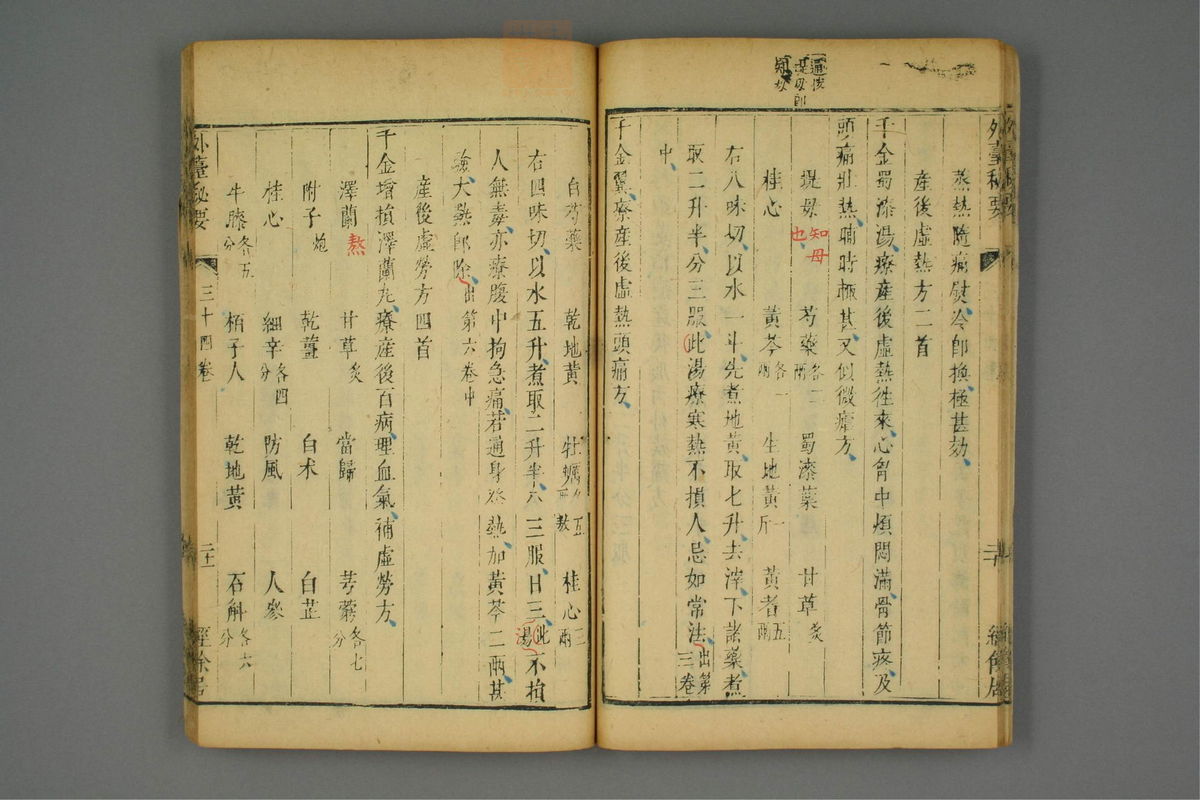 蒸熱隨痛熨冷即換極甚効
產後虛熱方二首
千金蜀漆湯療產後虛熱往來心胷中煩悶滿骨節疼及
頭痛壯熱晡時極甚又似微瘧方
提母 知母也 芍藥各二兩 蜀漆葉 甘草炙
桂心 黃芩各一兩 生地黃一斤 黃耆五兩
右八味切以水一斗先煮地黃取七升去滓下諸藥煮
取二升半分三服此湯療寒熱不損人忌如常法出第三卷
中
千金翼療產後虛熱頭痛方
白芍藥 乾地黃 牡蠣各五兩熬 桂心三兩
右四味切以水五升煮取二升半六 三服日三此湯不損
人無毒亦療腹中拘急痛若通身發熱加黃芩二兩甚
驗大熱即除出第六卷中
產後虛勞方四首
千金增損澤蘭丸療產後百病理血氣補虛勞方
澤蘭熬 甘草炙 當歸 芎藭各七分
附子炮 乾薑 白朮 白芷
桂心 細辛各四分 防風 人參
牛膝各五分 栢子人 乾地黃 石斛各六分
外臺秘要 三十四卷 二十一 經餘居